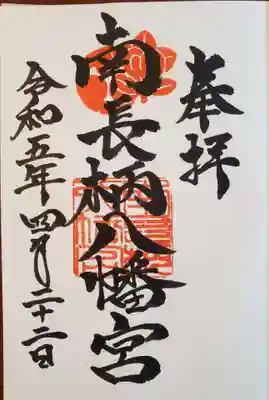 奉拝
南長柄八幡宮
令和五年四月二十二日